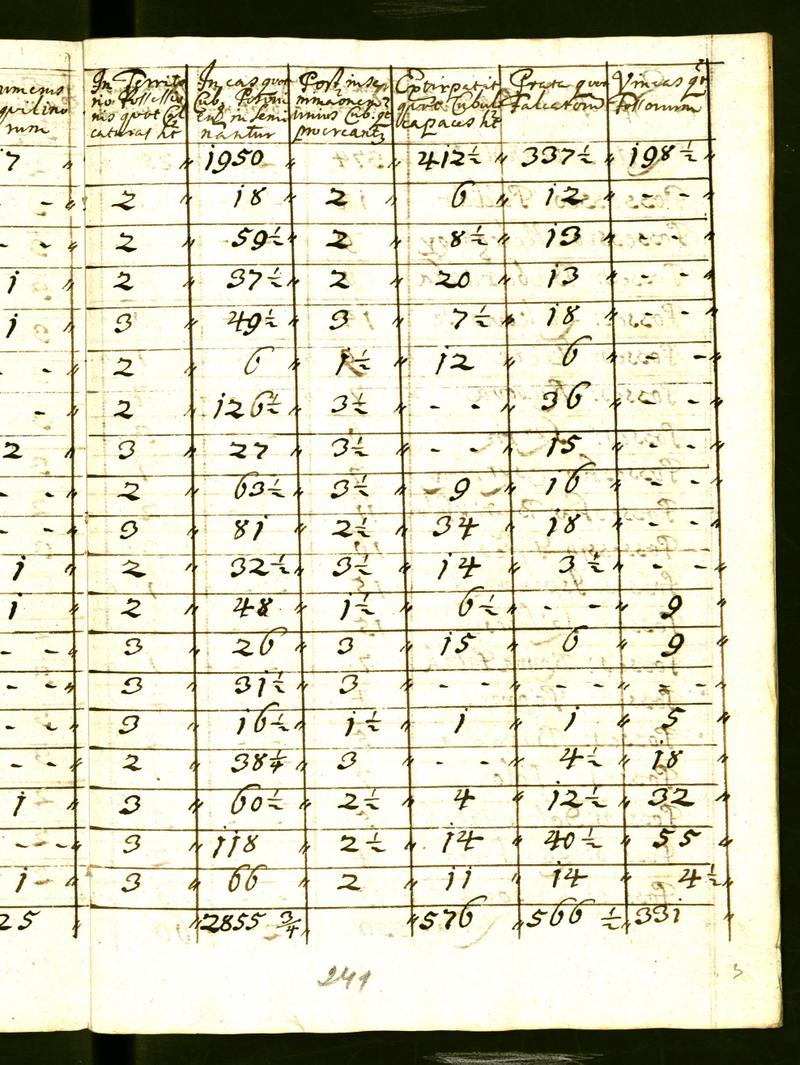 umerus quilino rum | In Territo rio Possessio nis quot Cal caturas ht | In eas quot Cub. Poson. ni semi nantur | Post in se unius Cub. qt procreant | Extirpatit quot Cubul capaces ht | Prata quot Falcatorum | Vineas qt Fossorum
7 " | " | 1950 " | " | 412½ " | 337½ " | 198½ "
- - " | 2 " | 18 " | 2 " | 6 " | 12 " | - - "
- - " | 2 " | 59½ " | 2 " | 8½ " | 13 " | - - "
1 " | 2 " | 37½ " | 2 " | 20 " | 13 " | - - "
1 " | 3 " | 49½ " | 3 " | 7½ " | 18 " | - - "
- - " | 2 " | 6 " | 1½ " | 12 " | 6 " | - - "
- " | 2 " | 126½ " | 3½ " | - - " | 36 " | - - "
2 " | 3 " | 27 " | 3½ " | - - " | 15 " | - - "
- - " | 2 " | 63½ " | 3½ " | 9 " | 16 " | - - "
- - " | 3 " | 81 " | 2½ " | 34 " | 18 " | - - "
1 " | 2 " | 32½ " | 3½ " | 14 " | 3½ " | - - "
1 " | 2 " | 48 " | 1½ " | 6½ " | - - " | 9 "
- - " | 3 " | 26 " | 3 " | 15 " | 6 " | 9 "
- - " | 3 " | 31½ " | 3 " | - - " | - - " | - - "
- - " | 3 " | 16½ " | 1½ " | 1 " | 1 " | 5 "
- - " | 2 " | 38¼ " | 3 " | - - " | 4½ " | 18 "
1 " | 3 " | 60½ " | 2½ " | 4 " | 12½ " | 32 "
- - - " | 3 " | 118 " | 2½ " | 14 " | 40½ " | 55 "
1 - " | 3 " | 66 " | 2 " | 11 " | 14 " | 4½ "
25 " | " | 2855¾ | " | 576 " | 566½ " | 331 "
241
3